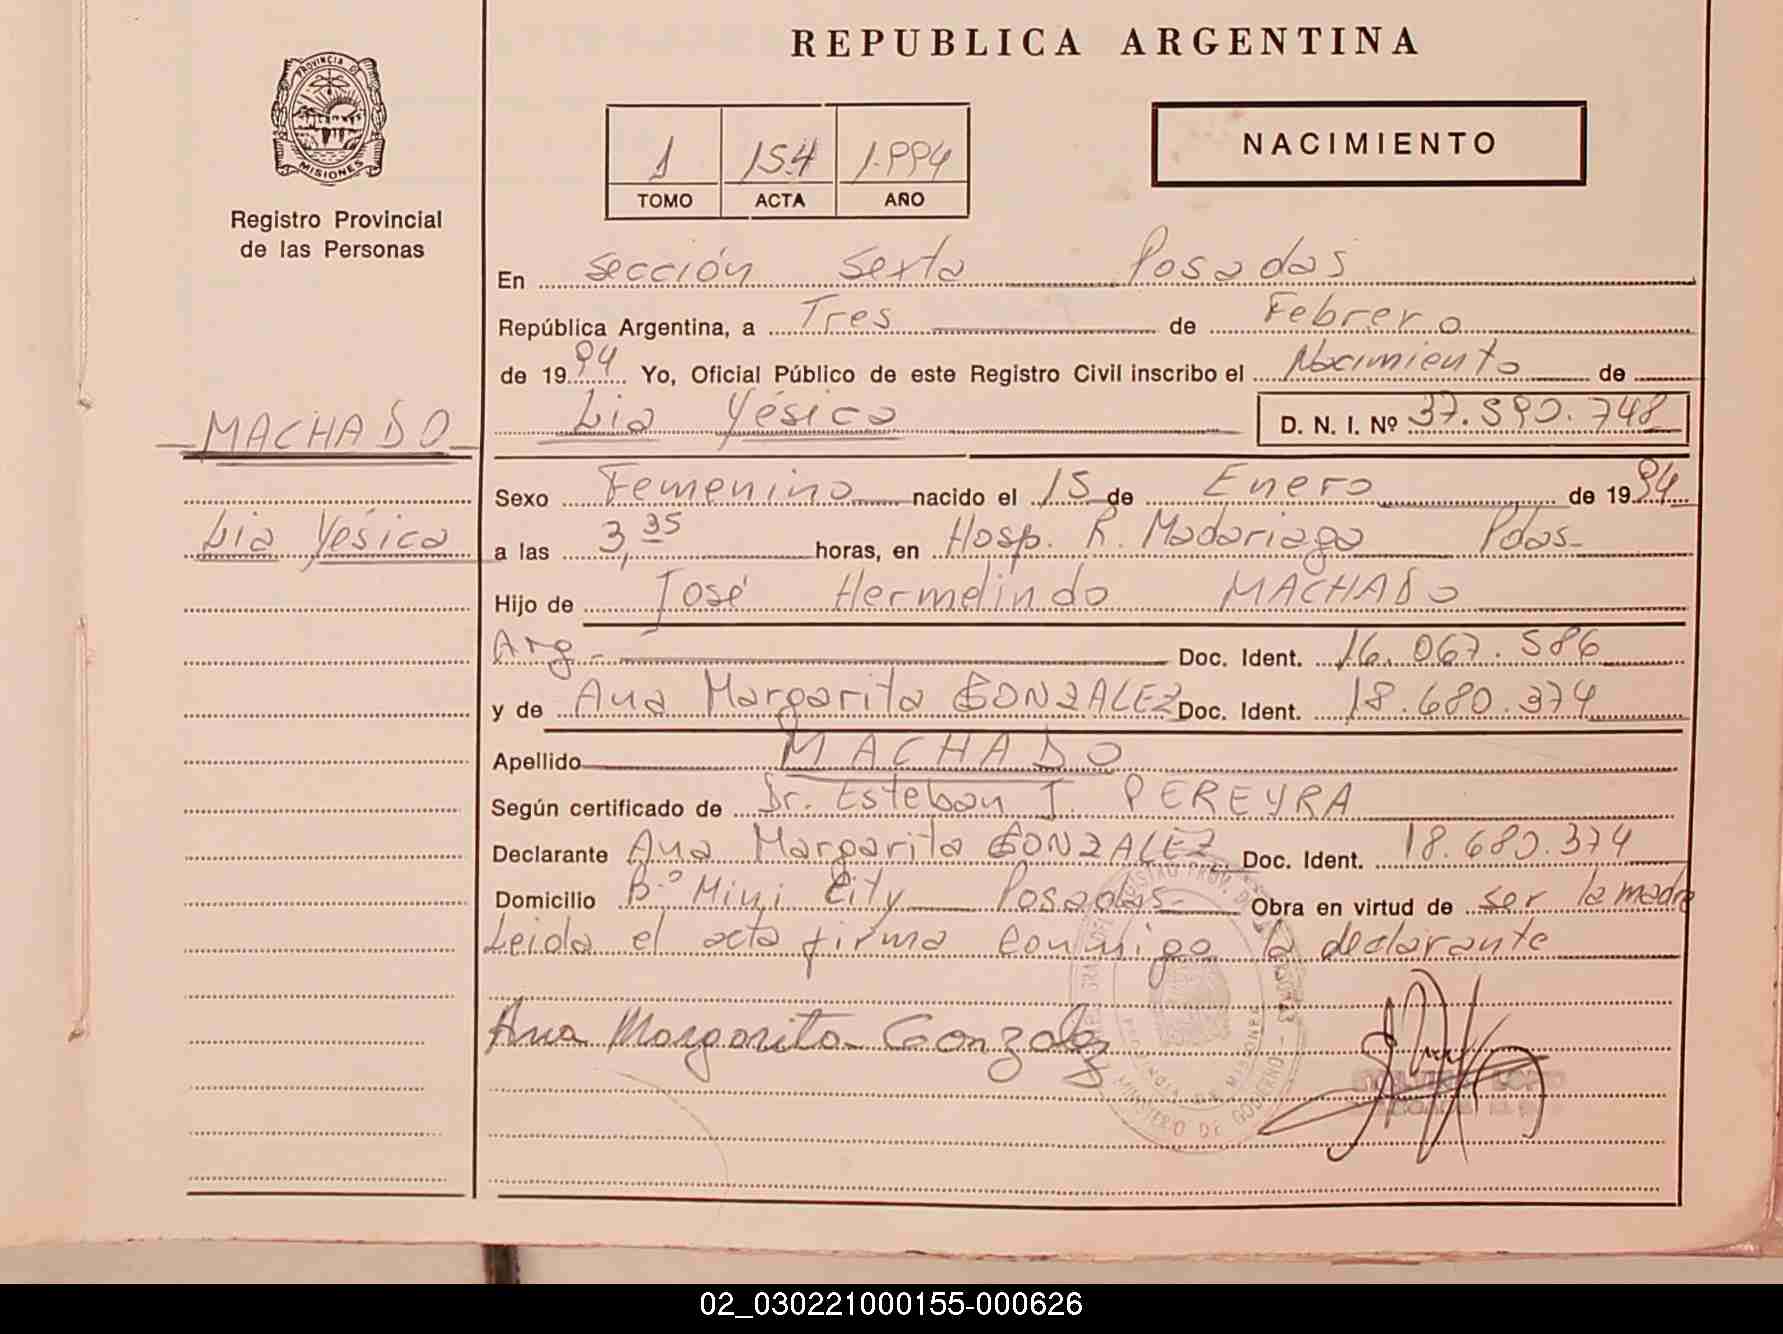 REPUBLICA ARGENTINA
PROVINCIA DE
MISIONES
Registro Provincial
de las Personas
NACIMIENTO
1 154 1.994
TOMO ACTA AÑO
En Sección Sexta Posadas
República Argentina, a Tres de Febrero
de 1994 Yo, Oficial Público de este Registro Civil inscribo el Nacimiento de
Lia Yésica D. N. I. Nº 37.590.748
MACHADO
Sexo Femenino nacido el 15 de Enero de 1994
Lia Yésica
a las 3,35 horas, en Hosp. R. Madariaga Pdas-
Hijo de José Hermelindo MACHADO
Arg- Doc. Ident. 16.067.586
y de Ana Margarita GONZALEZ Doc. Ident. 18.680.374
Apellido MACHADO
Según certificado de Dr. Esteban J. PEREYRA
Declarante Ana Margarita GONZALEZ Doc. Ident. 18.680.374
Domicilio Bº Mini City Posadas- Obra en virtud de ser la madre
Leida el acta firma conmigo la declarante
Ana Margarita Gonzalez
PROVINCIA DE MISIONES
MINISTERIO DE GOBIERNO
02_030221000155-000626